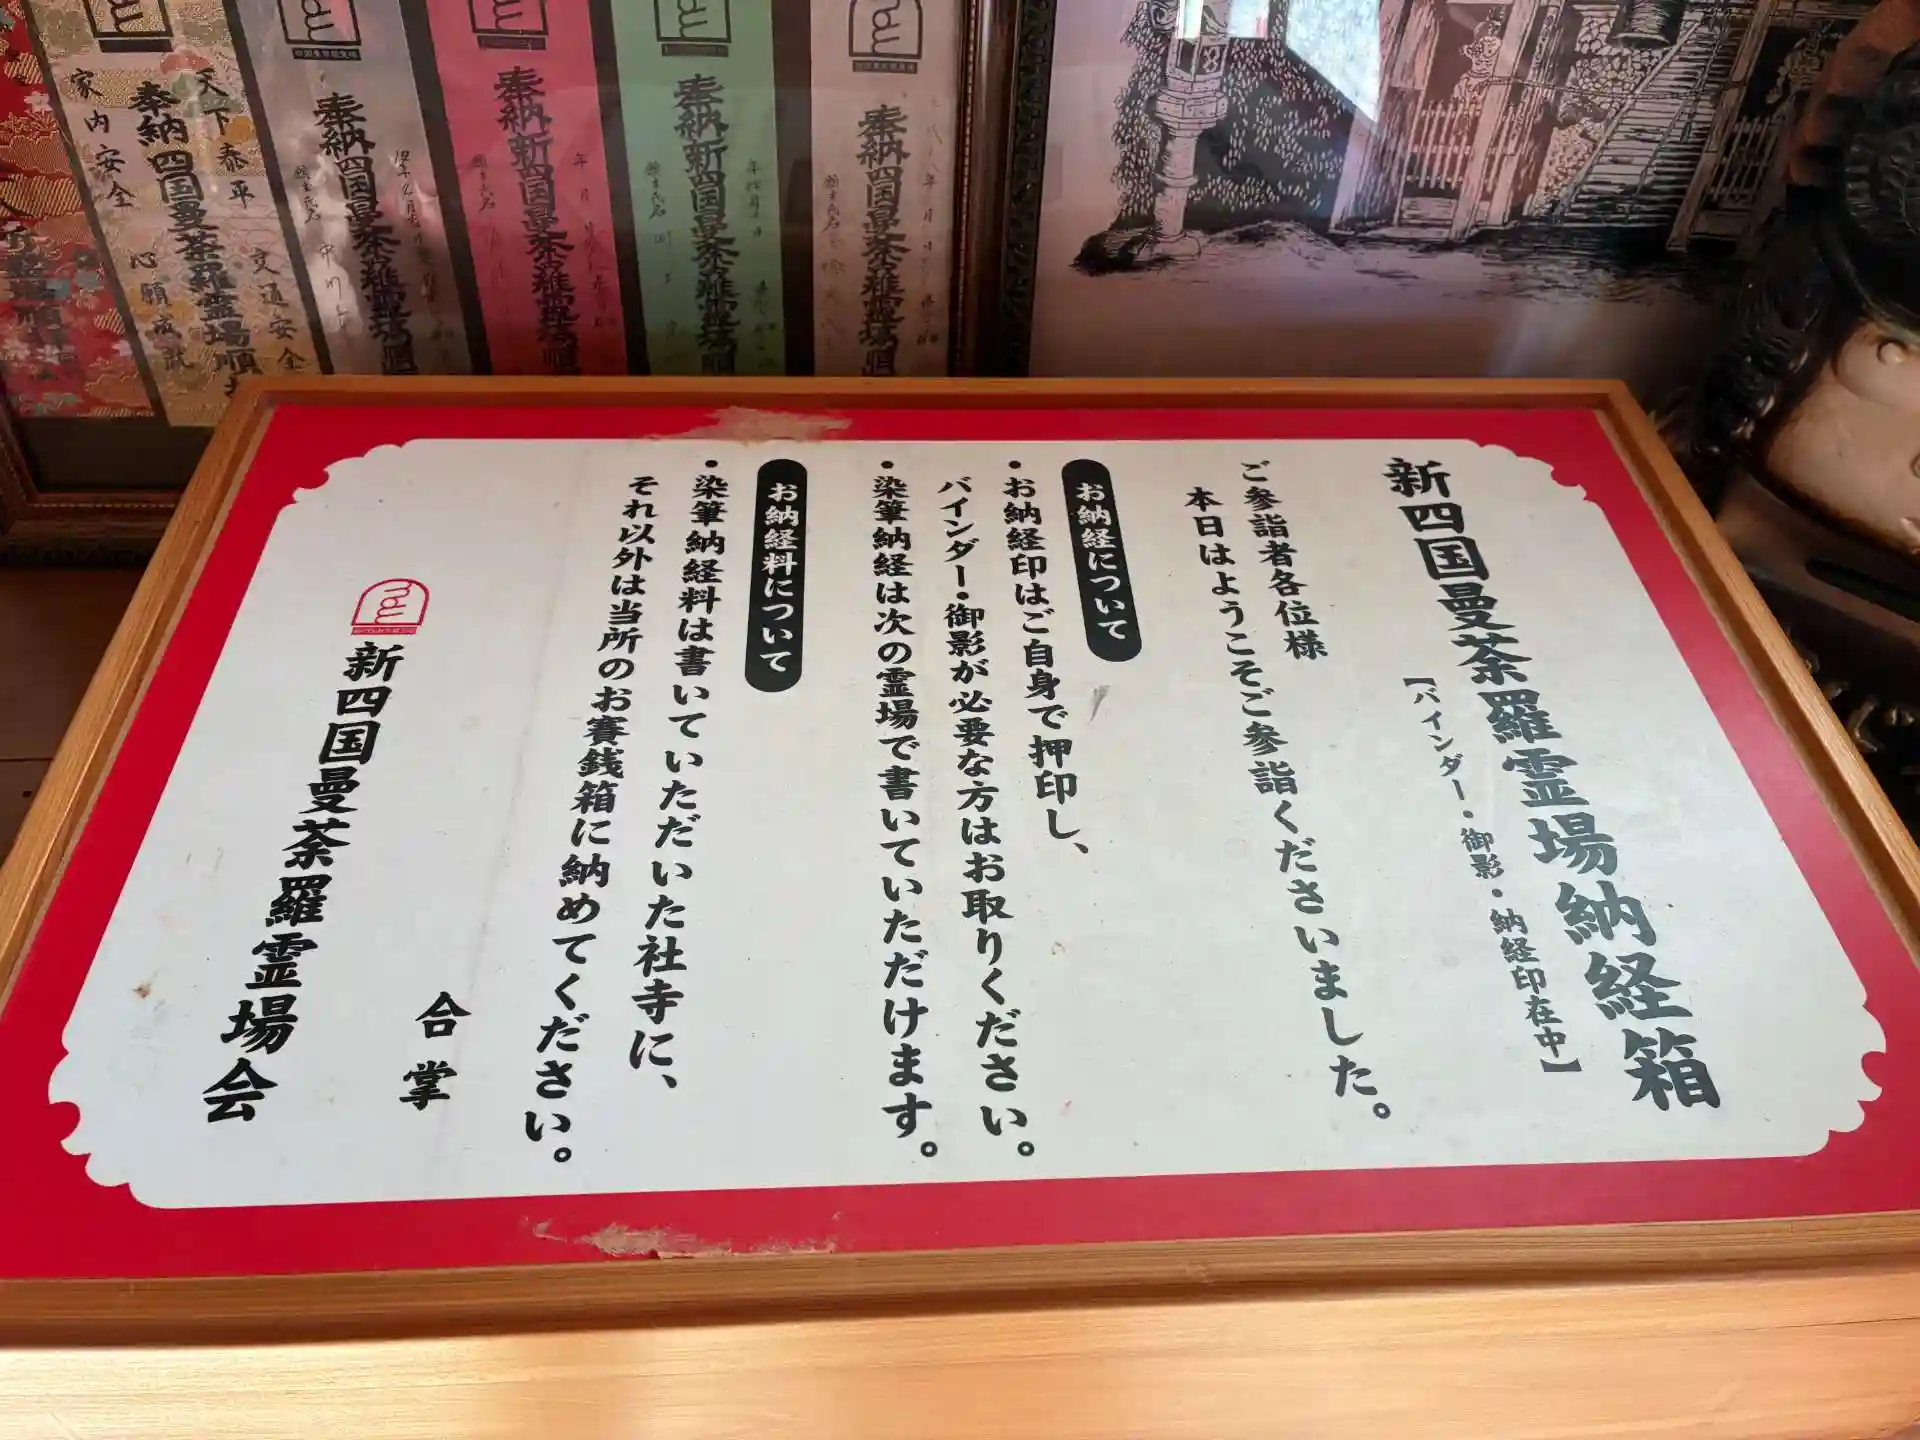 新四国曼荼羅霊場納経箱
【バインダー・御影・納経印在中】
ご参詣者各位様
本日はようこそご参詣くださいました。
お納経について
・お納経印はご自身で押印し、
バインダー・御影が必要な方はお取りください。
・染筆納経は次の霊場で書いていただけます。
お納経料について
・染筆納経料は書いていただいた社寺に、
それ以外は当所のお賽銭箱に納めてください。
合掌
新四国曼荼羅霊場会
奉納四国曼荼羅霊場順
奉納新四国曼荼羅霊場
奉納新四国曼荼羅霊場
奉納四国曼荼羅霊場順
天下泰平
交通安全
奉納四国曼荼羅霊場順
家内安全
心願成就